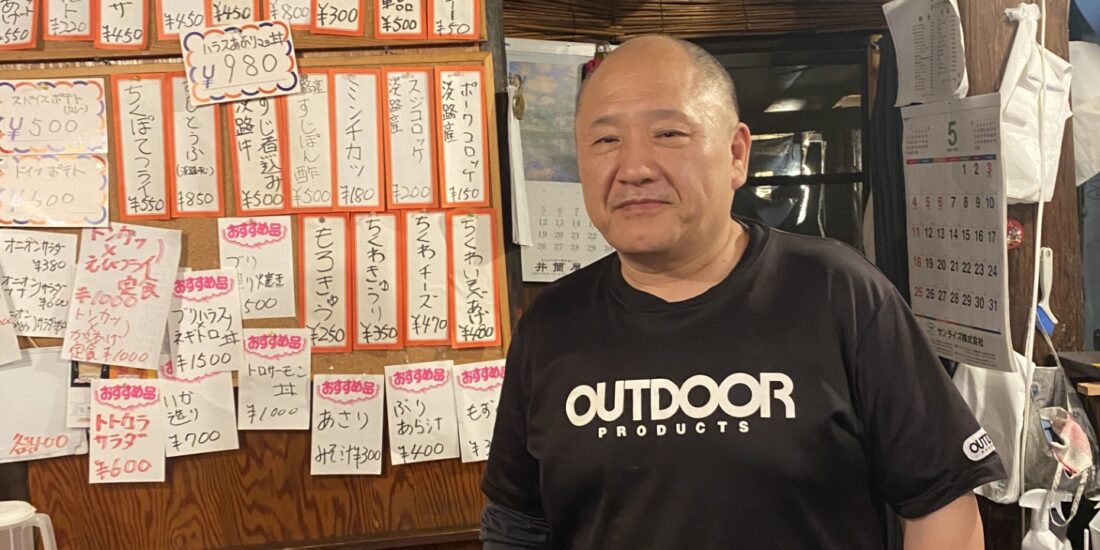 ¥550
¥220
¥450
¥450
¥450
¥800
¥300
単品
¥500
¥50
ハラスあぶり2色丼
¥980
スパイスポテト
¥500
ドイツポテト
¥600
ちくぽてフライ
¥550
¥850
すじ煮込み
¥500
淡路産
すじぽん酢
¥500
ミンチカツ
¥180
淡路産
スジコロッケ
¥200
淡路産
ポークコロッケ
¥150
もろきゅう
¥250
ちくわきゅうり
¥350
ちくわチーズ
¥470
ちくわいそべあげ
¥400
オニオンサラダ
¥380
¥600
トンカツ
×
えびフライ
定食
¥1000
トンカツ
×
からあげ
定食 ¥1000
おすすめ品
ブリ
500
おすすめ品
ブリハラス
×
ネギトロ丼
¥1500
おすすめ品
トロサーモン
丼
¥1000
各400
おすすめ品
サラダ
¥600
いか
造り
¥700
おすすめ品
あさり
みそ汁¥300
おすすめ品
ぶり
あら汁
¥400
おすすめ品
もず
井筒屋
5
1 2 3
4 5 6 7 8 9 10
11 12 13 14 15 16 17
18 19 20 21 22 23 24
25 26 27 28 29 30 31
サンライズ株式会社
OUTDOOR
PRODUCTS
OUTDOOR